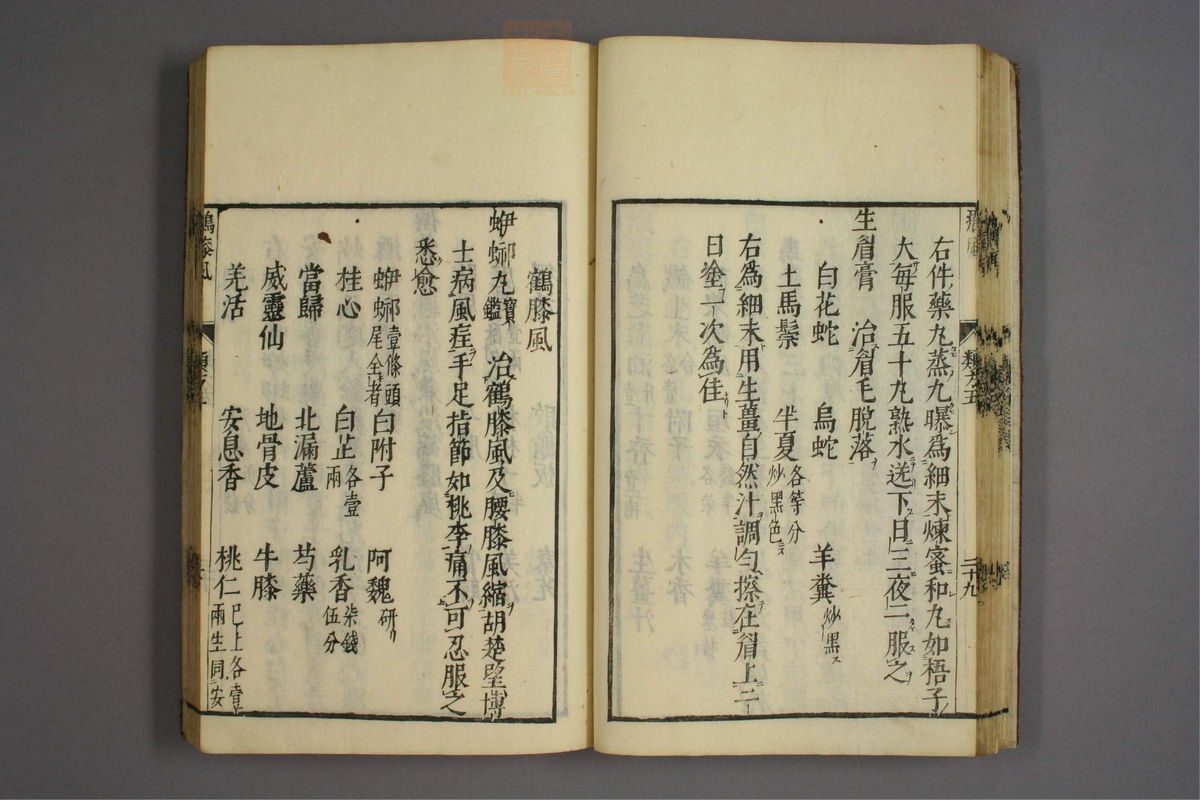 右件藥九蒸九曝為細末煉蜜和丸如梧子
大每服五十丸熟水送下日三夜二服之
生眉膏 治眉毛脫落
白花蛇 烏蛇 羊糞炒黑
土馬鬃 半夏各等分炒黑色
右為細末用生薑自然汁調勻擦在眉上二
日塗一次為佳
鶴膝風
蛜𧌴丸寶鑑 治鶴膝風及腰膝風縮胡楚望博
士病風疰手足指節如桃李痛不可忍服之
悉愈
蛜𧌴壹條頭尾全者 白附子 阿魏研
桂心 白芷各壹兩 乳香柒錢伍分
當歸 北漏蘆 芍藥
威靈仙 地骨皮 牛膝
羌活 安息香 桃仁已上各壹兩生同安
鶴膝風
二十九